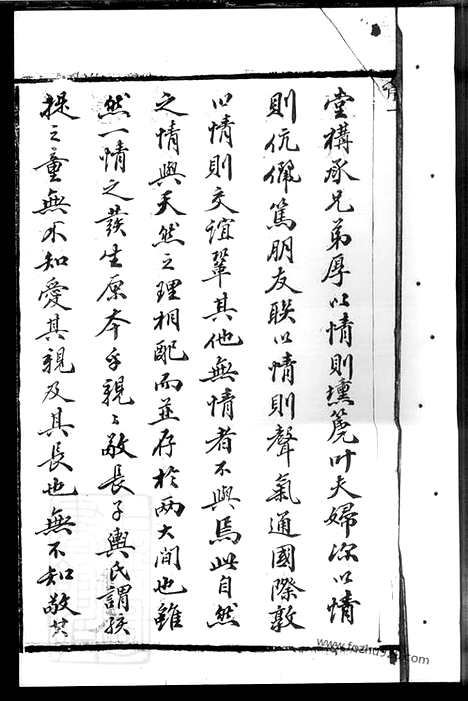 堂構承兄弟厚以情則壎篪叶夫婦深以情
則伉儷篤朋友联以情則聲氣通國際敦
以情則交誼鞏其他無情者不與焉此自然
之情與天然之理相配而並存於兩大間也雖
然一情之發生原本乎親〻敬長子輿氏謂孩
提之童無不知愛其親及其長也無不知敬其
www.fozhu920.com